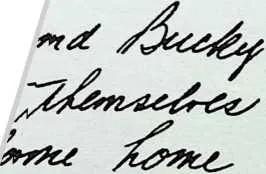 nd Bucky
themselves
ome home